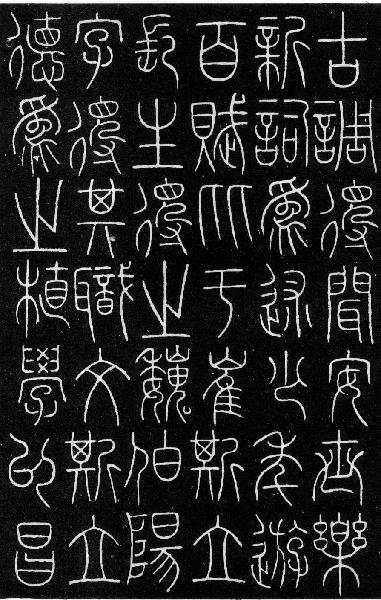 古調得聞安齊樂
新詞為少年遊
百賦于崔斯立
長生得之魏伯陽
字得其職文斯立
德為之植學以昌